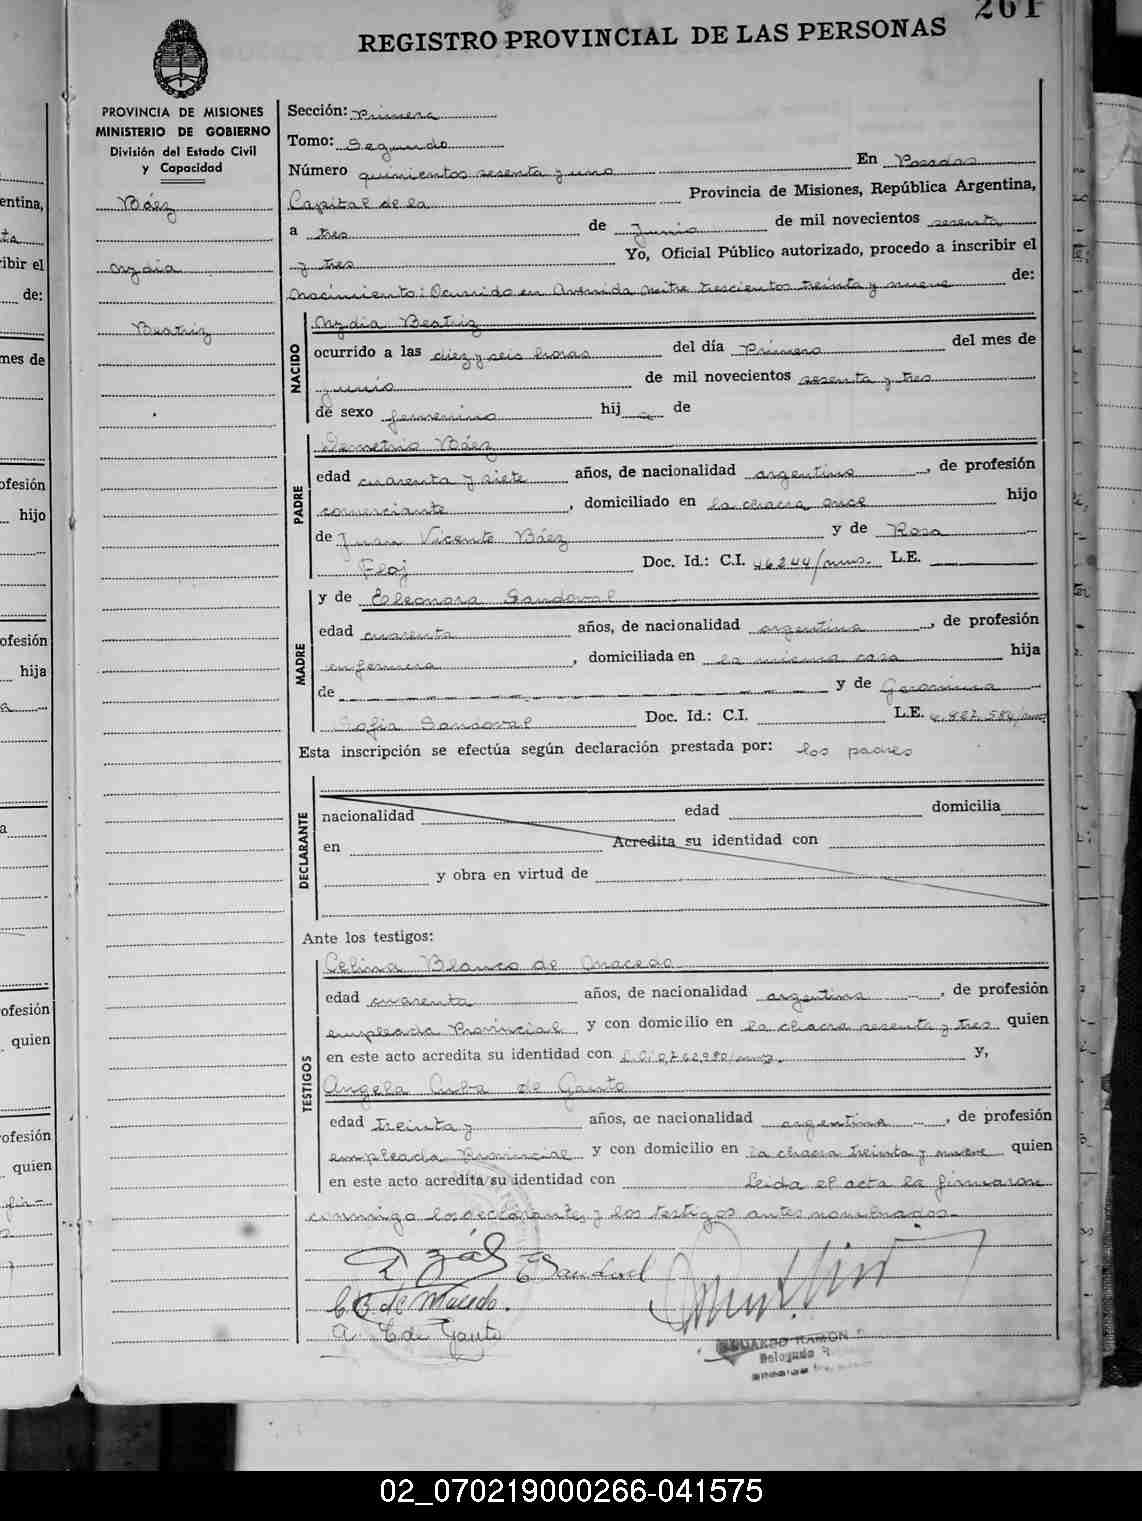 261
REGISTRO PROVINCIAL DE LAS PERSONAS
PROVINCIA DE MISIONES
MINISTERIO DE GOBIERNO
División del Estado Civil
y Capacidad
Báez
Nydia
Beatriz
Sección: Primera
Tomo: Segundo
Número quinientos sesenta y uno En Posadas
Capital de la Provincia de Misiones, República Argentina,
a tres de Junio de mil novecientos sesenta
y tres Yo, Oficial Público autorizado, procedo a inscribir el
nacimiento: Ocurrido en Avenida Mitre trescientos treinta y nueve de:
NACIDO
Nydia Beatriz
ocurrido a las diez y seis horas del día Primero del mes de
junio de mil novecientos sesenta y tres
de sexo femenino hij a de
PADRE
Demetrio Báez
edad cuarenta y siete años, de nacionalidad argentino, de profesión
comerciante, domiciliado en la chacra once hijo
de Juan Vicente Báez y de Rosa
Floj Doc. Id.: C.I. 46244/mns. L.E.
MADRE
y de Eleonora Sandoval
edad cuarenta años, de nacionalidad argentina, de profesión
enfermera, domiciliada en la misma casa hija
de y de Geronima
Sofia Sandoval Doc. Id.: C.I. L.E.
Esta inscripción se efectúa según declaración prestada por: los padres
DECLARANTE
nacionalidad edad domicilia
en Acredita su identidad con
y obra en virtud de
Ante los testigos:
TESTIGOS
Celina Blanco de Macedo
edad cuarenta años, de nacionalidad argentina, de profesión
empleada Provincial y con domicilio en la chacra sesenta y tres quien
en este acto acredita su identidad con y,
Angela Cuba de Gauto
edad treinta y años, de nacionalidad argentina, de profesión
empleada Provincial y con domicilio en la chacra treinta y nueve quien
en este acto acredita su identidad con Leida el acta la firmaron
conmigo los declarantes y los testigos antes nombrados.
E Sandoval
C.B. de Macedo.
A. C. de Gauto
EDUARDO RAMON
Delegado
02_070219000266-041575